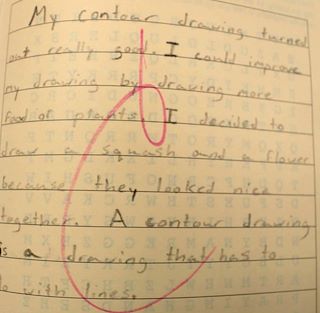 My contour drawing turned
out really good. I could improve
my drawing by drawing more
food or plants. I decided to
draw a squash and a flower
because they looked nice
together. A contour drawing
is a drawing that has to
do with lines.